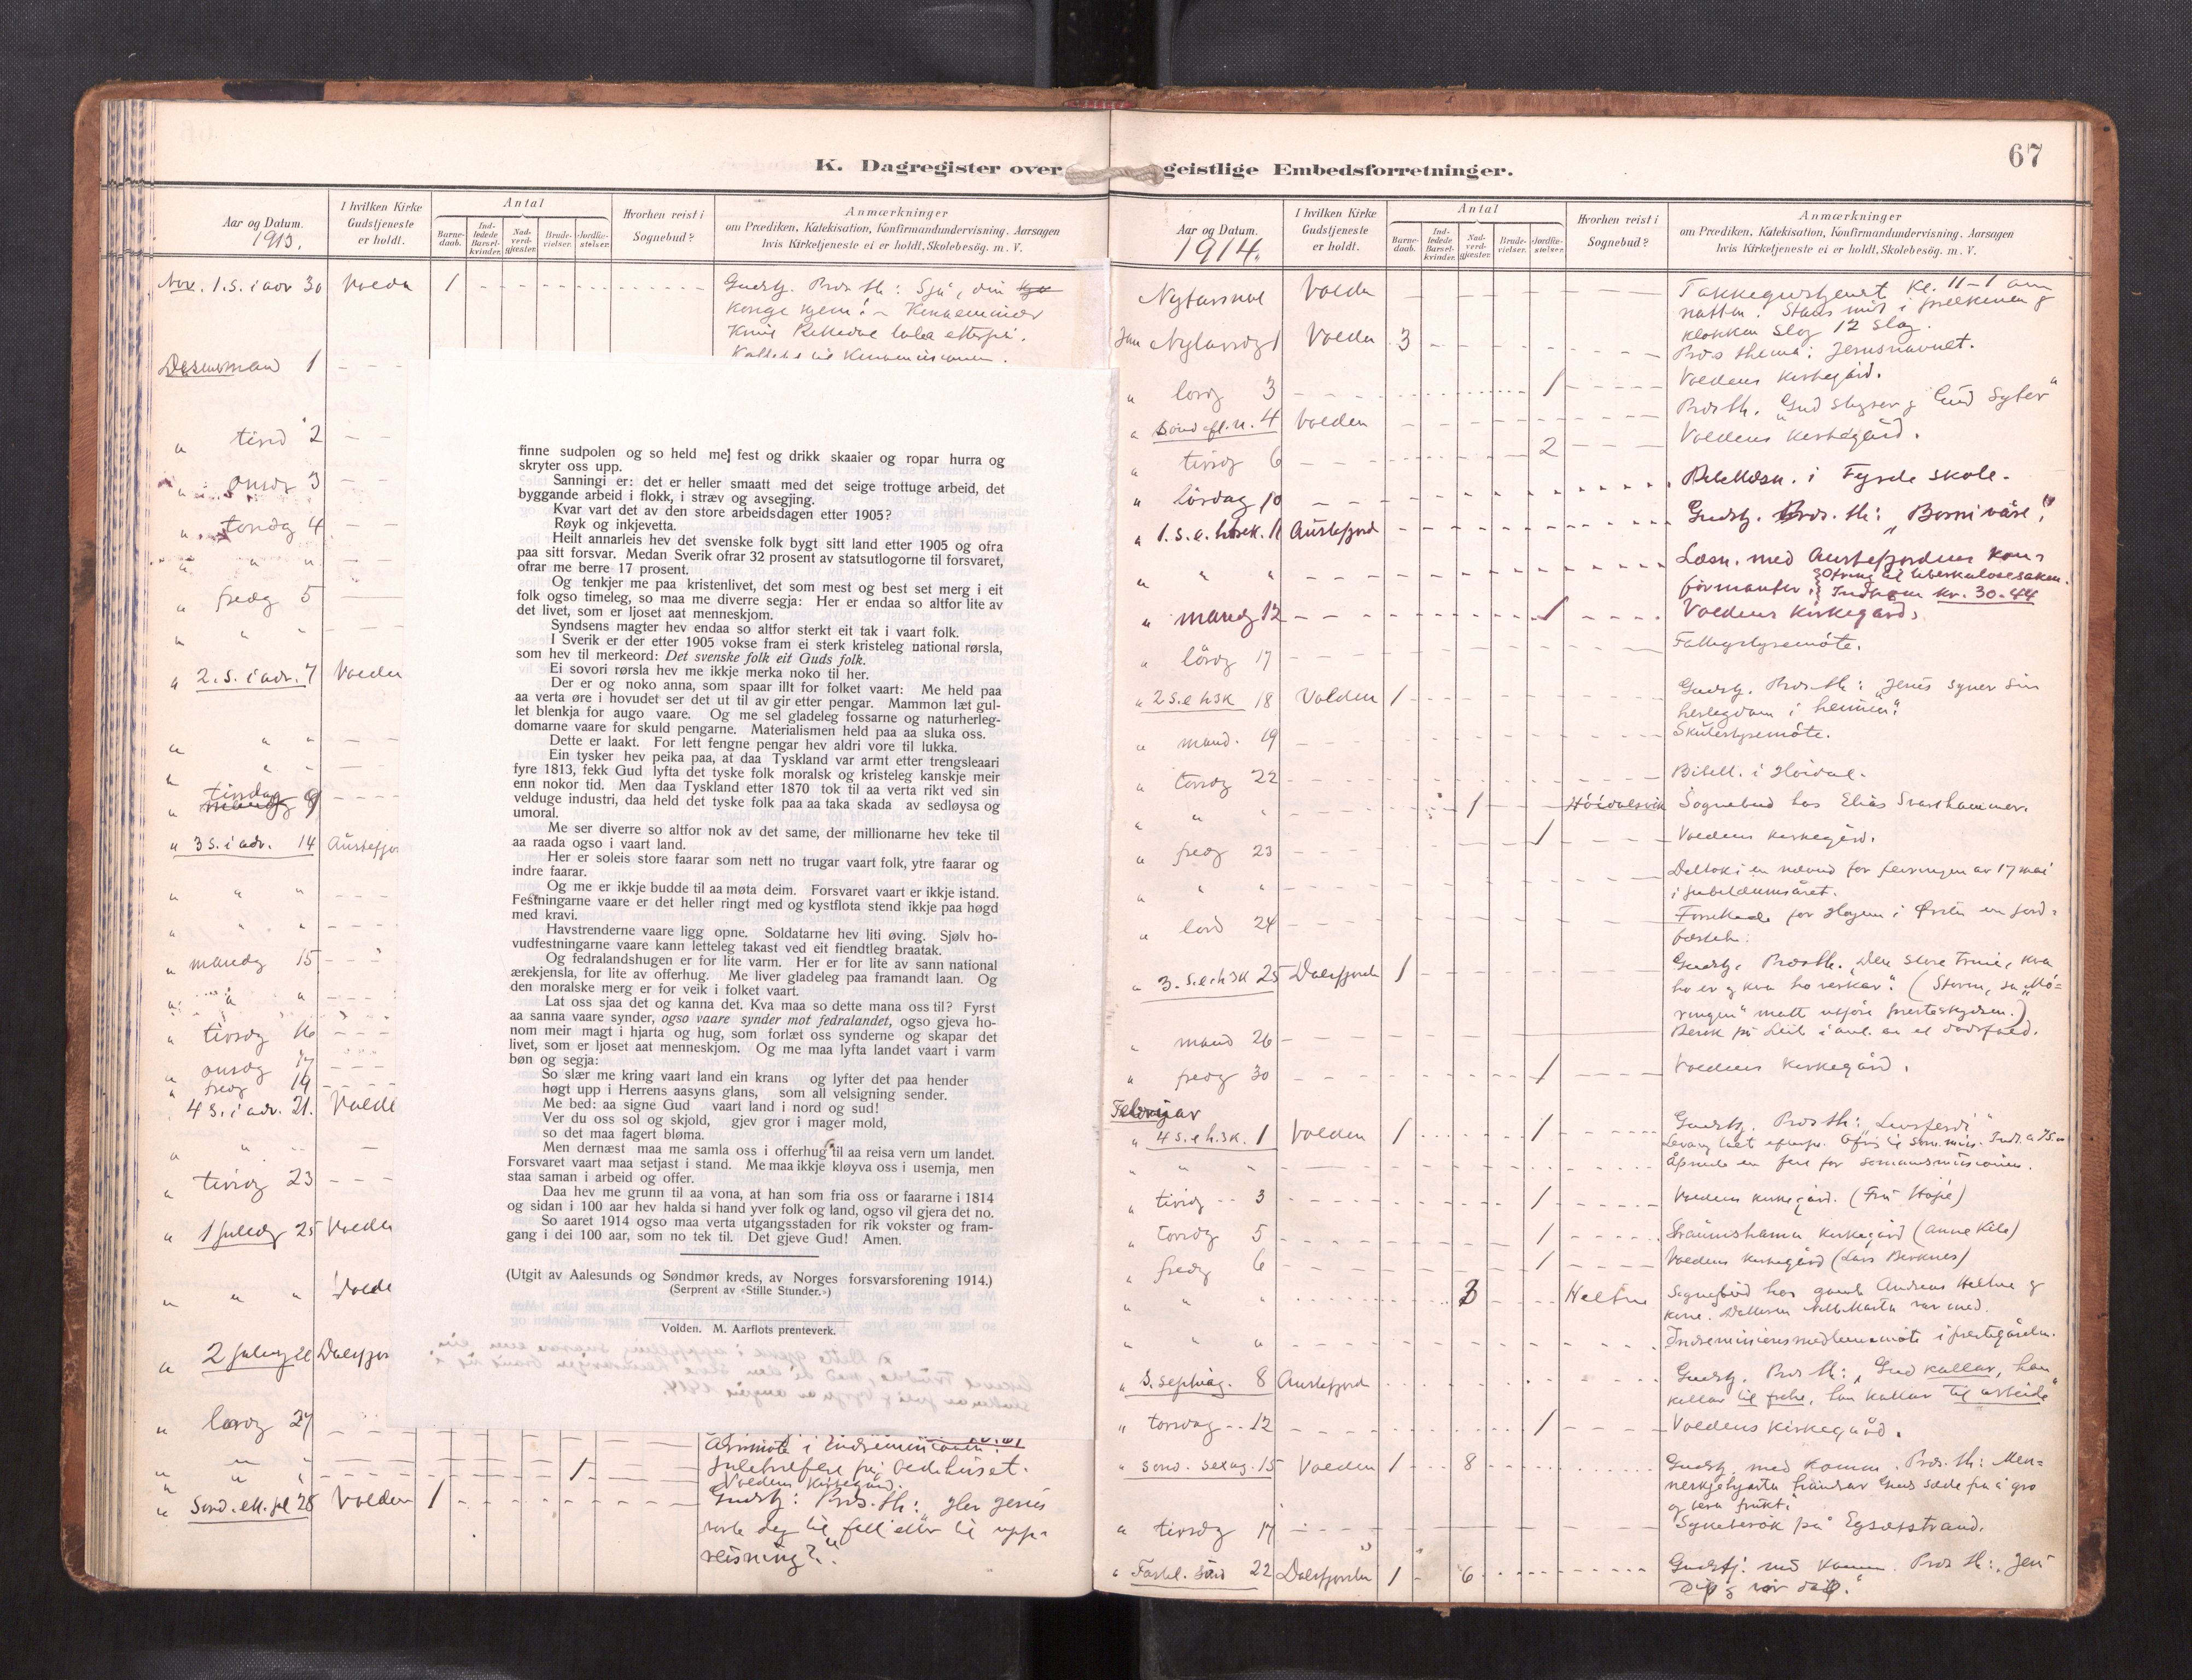 K. Dagregister over
Aar og Datum.
1913.
I hvilken Kirke
Gudstjeneste
er holdt.
Antal
Barne-
daab.
Ind-
ledede
Barsel-
kvinder.
Nad-
verd-
gjæster.
Brude-
vielser.
Jordfæ-
stelser.
Hvorhen reist i
Sognebud?
Anmærkninger
om Prædiken, Katekisation, Konfirmandundervisning. Aarsagen
hvis Kirketjeneste ei er holdt, Skolebesög. m. V.
Nov. 1. S. i adv 30 Volda 1
konge kjem!
Desember mand 1
" tirsd 2
" onsd 3
" torsdag 4
" " "
" fredg 5
" " "
" 2. S. i adv. 7 Volden
" " "
" "
" tirsdag 9
" 3 S. i adv. 14 Austefjor
" " "
" " "
" mandg 15
" " "
" tirsdg 16
" onsdg 17
" fredg 19
4 S. i adv. 21. Volde
" "
" tirsdg 23
" 1 juledg 25 Volde
" " " Volde
" 2 juledg 26 Dalsfjor
" lørdg 27
Årsmöte i Indremissionen.
" " "
juletrefest på bedehuset.
" " " 1 Voldens Kirkegård.
" Sönd. ell. jul 28 Volden 1 Gudstj: Præs. th: „Her Jesus
deg til fall eller til upp-
reisning?“
finne sudpolen og so held me fest og drikk skaaler og ropar hurra og
skryter oss upp.
Sanningi er: det er heller smaatt med det seige trottuge arbeid, det
byggande arbeid i flokk, i stræv og avsegjing.
Kvar vart det av den store arbeidsdagen etter 1905?
Røyk og inkjevetta.
Heilt annarleis hev det svenske folk bygt sitt land etter 1905 og ofra
paa sitt forsvar. Medan Sverik ofrar 32 prosent av statsutlogorne til forsvaret,
ofrar me berre 17 prosent.
Og tenkjer me paa kristenlivet, det som mest og best set merg i eit
folk ogso timeleg, so maa me diverre segja: Her er endaa so altfor lite av
det livet, som er ljoset aat menneskjom.
Syndsens magter hev endaa so altfor sterkt eit tak i vaart folk.
I Sverik er der etter 1905 vokse fram ei sterk kristeleg national rørsla,
som hev til merkeord: Det svenske folk eit Guds folk.
Ei sovori rørsla hev me ikkje merka noko til her.
Der er og noko anna, som spaar illt for folket vaart: Me held paa
aa verta øre i hovudet ser det ut til av gir etter pengar. Mammon læt gul-
let blenkja for augo vaare. Og me sel gladeleg fossarne og naturherleg-
domarne vaare for skuld pengarne. Materialismen held paa aa sluka oss.
Dette er laakt. For lett fengne pengar hev aldri vore til lukka.
Ein tysker hev peika paa, at daa Tyskland var armt etter trengsleaari
fyre 1813, fekk Gud lyfta det tyske folk moralsk og kristeleg kanskje meir
enn nokor tid. Men daa Tyskland etter 1870 tok til aa verta rikt ved sin
velduge industri, daa held det tyske folk paa aa taka skada av sedløysa og
umoral.
Me ser diverre so altfor nok av det same, der millionarne hev teke til
aa raada ogso i vaart land.
Her er soleis store faarar som nett no trugar vaart folk, ytre faarar og
indre faarar.
Og me er ikkje budde til aa møta deim. Forsvaret vaart er ikkje istand.
Festningarne vaare er det heller ringt med og kystflota stend ikkje paa høgd
med kravi.
Havstrenderne vaare ligg opne. Soldatarne hev liti øving. Sjølv ho-
vudfestningarne vaare kann letteleg takast ved eit fiendtleg braatak.
Og fedralandshugen er for lite varm. Her er for lite av sann national
ærekjensla, for lite av offerhug. Me liver gladeleg paa framandt laan. Og
den moralske merg er for veik i folket vaart.
Lat oss sjaa det og kanna det. Kva maa so dette mana oss til? Fyrst
aa sanna vaare synder, ogso vaare synder mot fedralandet, ogso gjeva ho-
nom meir magt i hjarta og hug, som forlæt oss synderne og skapar det
livet, som er ljoset aat menneskjom. Og me maa lyfta landet vaart i varm
bøn og segja:
So slær me kring vaart land ein krans og lyfter det paa hender
høgt upp i Herrens aasyns glans, som all velsigning sender.
Me bed: aa signe Gud vaart land i nord og sud!
Ver du oss sol og skjold, gjev gror i mager mold,
so det maa fagert bløma.
Men dernæst maa me samla oss i offerhug til aa reisa vern um landet.
Forsvaret vaart maa setjast i stand. Me maa ikkje kløyva oss i usemja, men
staa saman i arbeid og offer.
Daa hev me grunn til aa vona, at han som fria oss or faararne i 1814
og sidan i 100 aar hev halda si hand yver folk og land, ogso vil gjera det no.
So aaret 1914 ogso maa verta utgangsstaden for rik vokster og fram-
gang i dei 100 aar, som no tek til. Det gjeve Gud! Amen.
(Utgit av Aalesunds og Søndmør kreds, av Norges forsvarsforening 1914.)
(Serprent av «Stille Stunder.»)
Volden. M. Aarflots prenteverk.
geistlige Embedsforretninger.
67
Aar og Datum.
1914.
I hvilken Kirke
Gudstjeneste
er holdt.
Antal
Barne-
daab.
Ind-
ledede
Barsel-
kvinder.
Nad-
verd-
gjæster.
Brude-
vielser.
Jordfæ-
stelser.
Hvorhen reist i
Sognebud?
Anmærkninger
om Prædiken, Katekisation, Konfirmandundervisning. Aarsagen
hvis Kirketjeneste ei er holdt, Skolebesög. m. V.
Nyårsnat Volden Takkegudstjenest Kl. 11-1 om
natten. Stans mit i preikenen og
klokken slog 12 slag.
Jan Nyårsdg 1 Volden 3 Præs thema: Jesusnavnet.
" lørdg 3 1 Voldens kirkegård.
" Sönd efl. n. 4 Volden Præs th. „Gud styrer og Gud syter“
" tirsdg 6 2 Voldens kirkegård.
" lördag 10 Bibellæsn. i Fyrde skole.
" 1. s. e. h3ek. 11 Austefjord Gudstj. Præs. th: „Borni våre“
" " " Læsn. med Austefjordens kon-
firmanter. Ofring til tuberkulosesaken.
Indkom kr. 30.44
" mandg 12 1 Voldens kirkegård.
" lördg 17 Fattigstyremöte.
" 2 s. e h3k 18 Volden 1 Gudstj. Præs. th: „Jesus syner sin
herlegdom i heimen“
" mand. 19 Skulestyremöte.
" torsdg 22 Bibell. i Höidal.
" " 1 Höidalsvik Sognebud hos Elias Svarthammer.
" fredg 23 1 Voldens kirkegård.
" " " Deltok i en nevnd for feiringen av 17 mai
i jubilæumsåret.
" lörd 24 Forrettede for Hagen i Örsta en jord-
fæstelse.
" 3. s. e. h3k 25 Dalsfjorden 1 Gudstj. Præs th. „Den store trui, kva
ho er og kva ho verkar“. (Storm, sa „Mö-
ringen“ matt utföre presteskydsen.)
" mand 26
" fredg 30 1 Voldens kirkegård.
Februar
" 4 s. e h.3k. 1 Volden 1 1 Gudstj. Præs th: „Livsferdi“
Åpnede en fest for sömandsmissionen.
" tirsdg 3 1 Voldens kirkegård. (Fru Höjde)
" torsdg 5 1 Straumshamn kirkegård (Anne Kile)
" fredg 6 1 Voldens kirkegård (Lars Berknes)
" " 3 Heltne Sognebud hos gamle Andreas Heltne og
kone.
" " " Indremissionsmedlemsmöte i prestegården.
" S. septuag. 8 Austefjord Gudstj. Præs th: „Gud kallar, han
kallar til frelse, han kallar til arbeide“
" torsdag 12 1 Voldens Kirkegård.
" sönd. sexag. 15 Volden 1 8 Gudstj. med komm. Præs. th: Men-
neskjehjarta Guds sæde fra å gro
og bera frukt.
" tirsdg 17 Sykebesök på Egsetstrand.
" Fastel. sönd 22 Dalsfjorden 1 6 Gudstj. med komm. Præs th: „Jesu
dåp og vår dåp.“